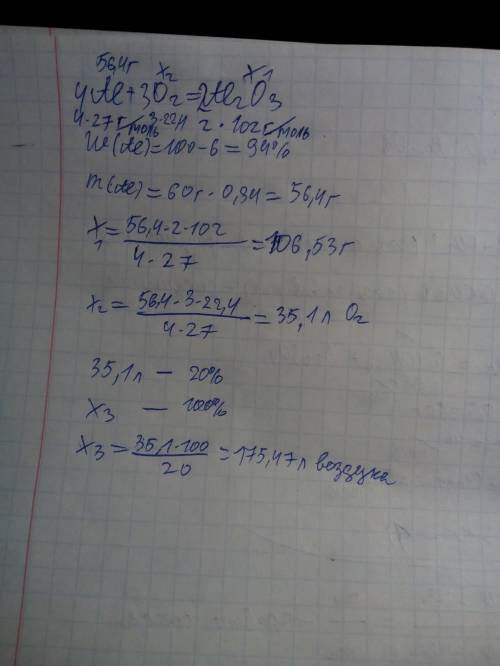 56,4г x₂ x1
4Al+3O₂=2Al₂O₃
4·27г/моль 3·22,4 2·102г/моль
W(Al)=100-6=94%
m(Al)=60г·0,94=56,4г
x₁=56,4·2·102/4·27=106,53г
x₂=56,4·3·22,4/4·27=35,1л O₂
35,1л — 20%
x₃ — 100%
x₃=35,1·100/20=175,47л воздуха